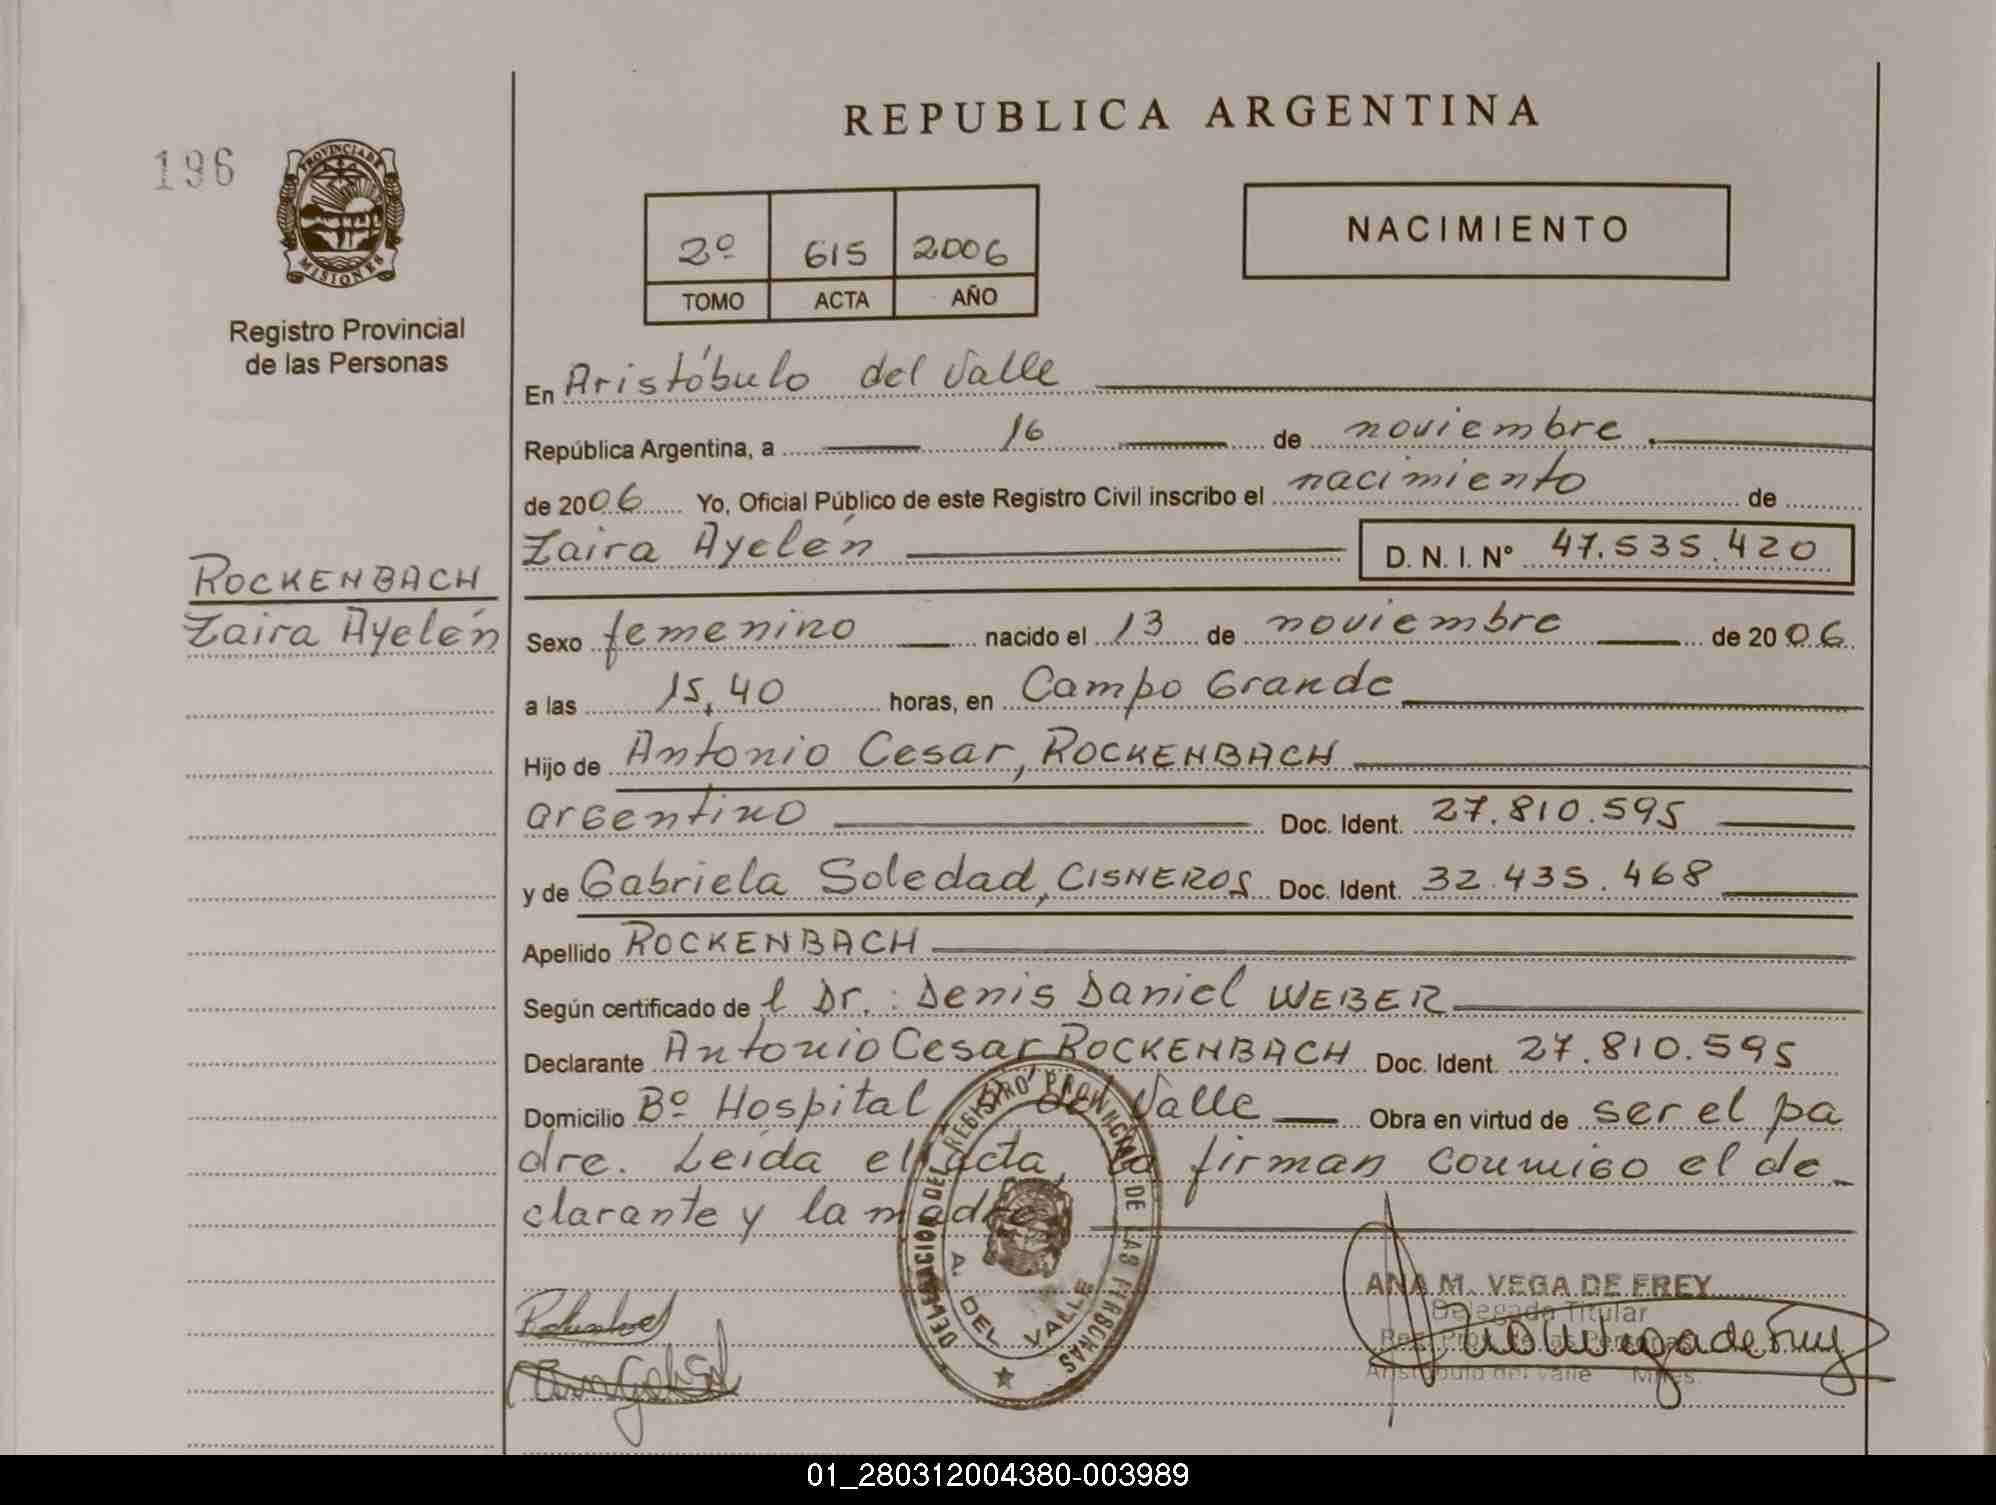 REPUBLICA ARGENTINA
196
PROVINCIA DE
MISIONES
Registro Provincial
de las Personas
2º 615 2006
TOMO ACTA AÑO
NACIMIENTO
En Aristóbulo del Valle
República Argentina, a 16 de noviembre
de 2006 Yo, Oficial Público de este Registro Civil inscribo el nacimiento de
Zaira Ayelén D. N. I. Nº 47.535.420
ROCKENBACH
Zaira Ayelén
Sexo femenino nacido el 13 de noviembre de 2006
a las 15,40 horas, en Campo Grande
Hijo de Antonio Cesar, ROCKENBACH
argentino Doc. Ident. 27.810.595
y de Gabriela Soledad, CISNEROS Doc. Ident. 32.435.468
Apellido ROCKENBACH
Según certificado de l Dr.: Denis Daniel WEBER
Declarante Antonio Cesar ROCKENBACH Doc. Ident. 27.810.595
Domicilio Bº Hospital del Valle Obra en virtud de ser el pa
dre. Leída el acta, la firman conmigo el de_
clarante y la madre
DELEGACION DEL REGISTRO PROVINCIAL DE LAS PERSONAS
A. DEL VALLE
ANA M. VEGA DE FREY
Delegada Titular
Reg. Prov. de las Personas
Aristóbulo del Valle Mnes.
01_280312004380-003989